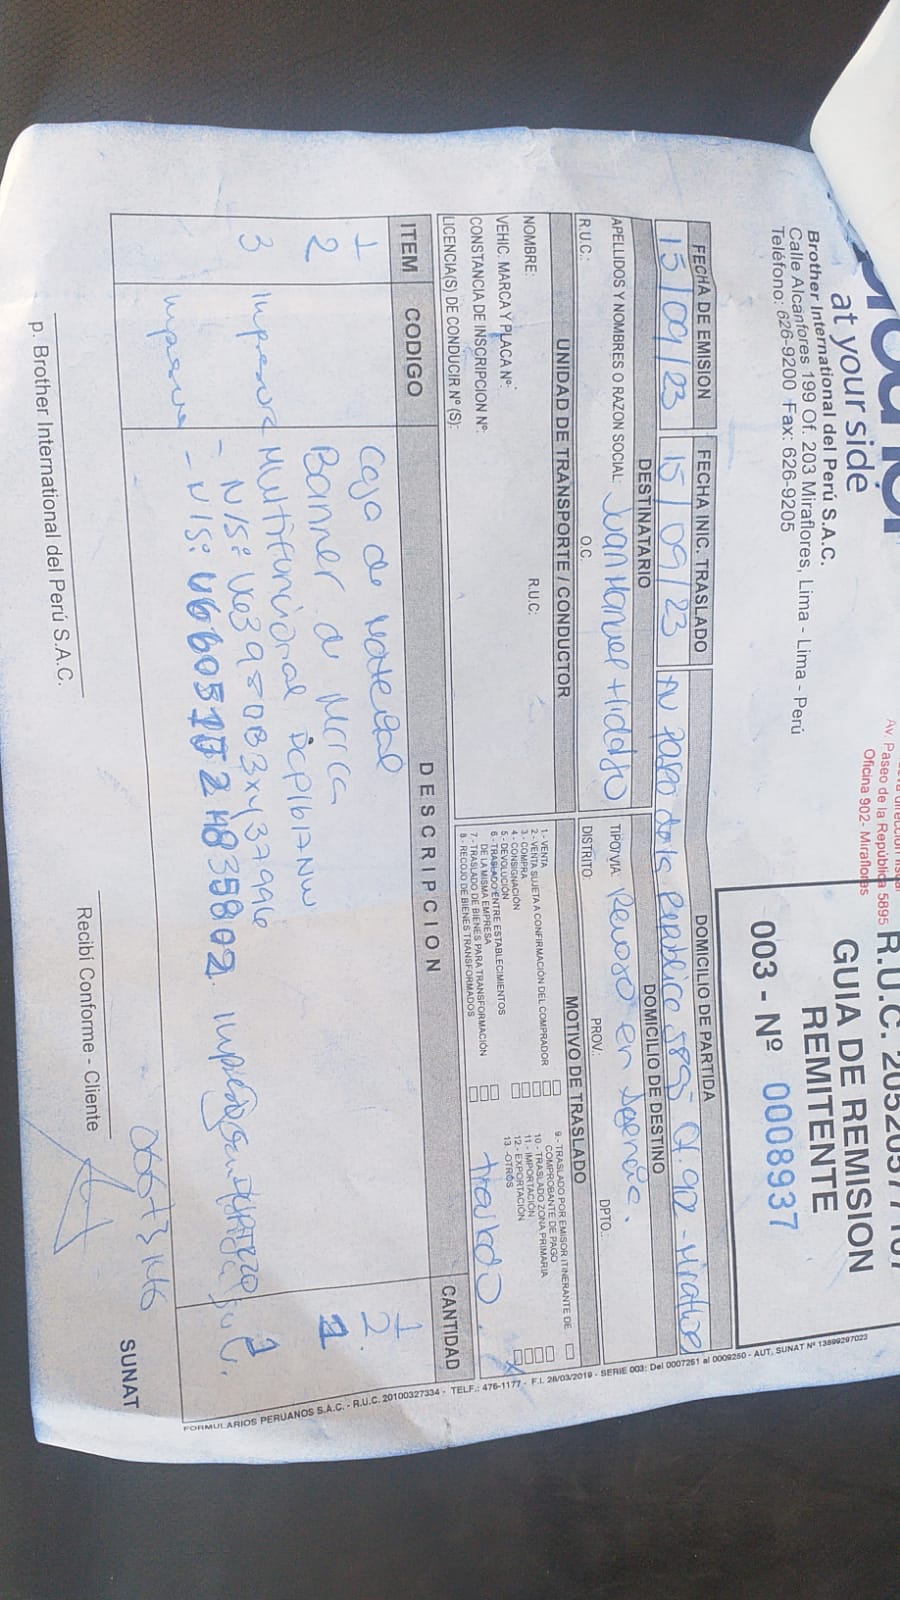 at your side
Brother International del Perú S.A.C.
Calle Alcanfores 199 Of. 203 Miraflores, Lima - Lima - Perú
Teléfono: 626-9200 Fax: 626-9205
Av. Paseo de la República 5895
Oficina 902- Miraflores
R.U.C. 20520577107
GUIA DE REMISION
REMITENTE
003 - Nº 0008937
FECHA DE EMISION
FECHA INIC. TRASLADO
DOMICILIO DE PARTIDA
15/09/23
15/09/23
Av paseo de la República 5895 Of. 902 - Miraflores
DESTINATARIO
DOMICILIO DE DESTINO
APELLIDOS Y NOMBRES O RAZON SOCIAL: Juan Manuel Hidalgo
TIPO/VIA: Recojo en
R.U.C.:
O.C.
DISTRITO:
PROV.:
DPTO.:
UNIDAD DE TRANSPORTE / CONDUCTOR
MOTIVO DE TRASLADO
NOMBRE:
R.U.C:
VEHIC. MARCA Y PLACA Nº:
CONSTANCIA DE INSCRIPCION Nº:
LICENCIA(S) DE CONDUCIR Nº (S):
1 - VENTA
2 - VENTA SUJETA A CONFIRMACIÓN DEL COMPRADOR
3 - COMPRA
4 - CONSIGNACIÓN
5 - DEVOLUCIÓN
6 - TRASLADO ENTRE ESTABLECIMIENTOS
DE LA MISMA EMPRESA
7 - TRASLADO DE BIENES PARA TRANSFORMACIÓN
8 - RECOJO DE BIENES TRANSFORMADOS
9 - TRASLADO POR EMISOR ITINERANTE DE
COMPROBANTE DE PAGO
10 - TRASLADO ZONA PRIMARIA
11 - IMPORTACIÓN
12 - EXPORTACIÓN
13 - OTROS
traslado.
ITEM
CODIGO
DESCRIPCION
CANTIDAD
1 Caja de Material 1
2 Banner de Marca 2.
3 Multifuncional 1
- N/S:
- N/S: 1
p. Brother International del Perú S.A.C.
Recibí Conforme - Cliente
SUNAT
FORMULARIOS PERUANOS S.A.C. - R.U.C. 20100327334 - TELF.: 476-1177 - F.I. 28/03/2019 - SERIE 003: Del 0007251 al 0009250 - AUT. SUNAT Nº 13899297023